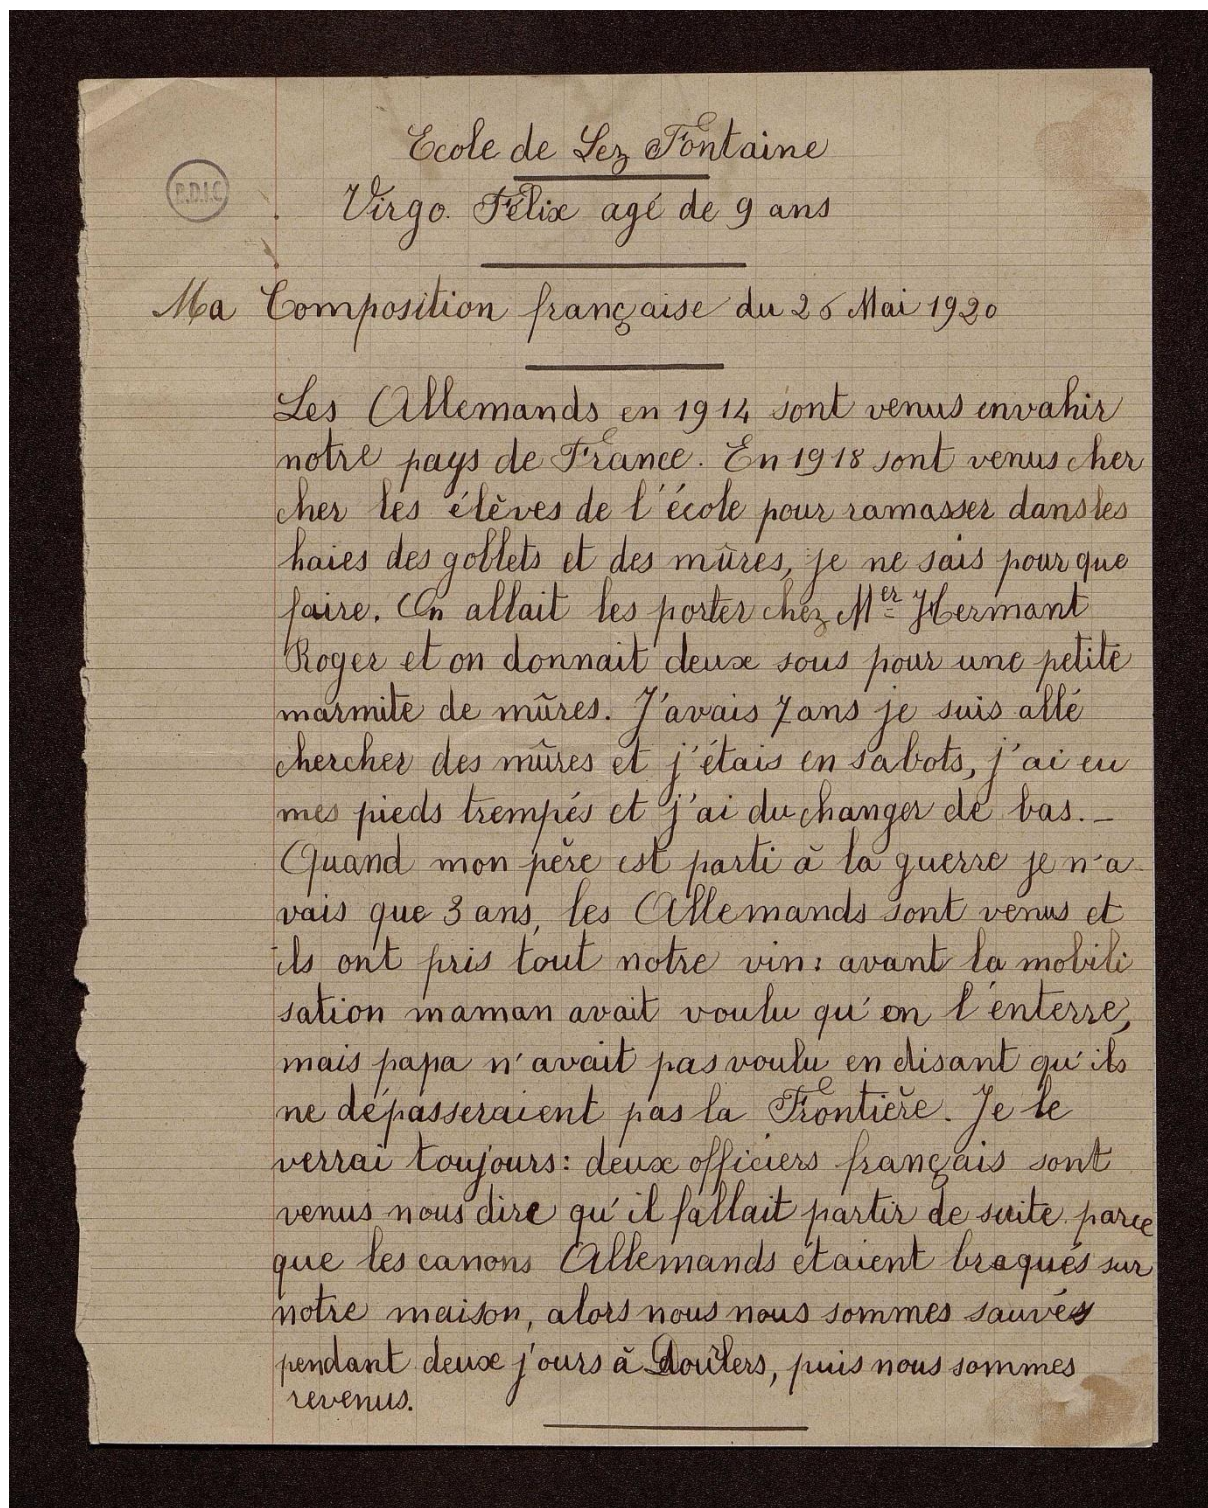 Ecole de Lez Fontaine
B.D.I.C
Virgo. Félix agé de 9 ans
Ma Composition française du 26 Mai 1920
Les Allemands en 1914 sont venus envahir
notre pays de France. En 1918 sont venus cher
cher les élèves de l'école pour ramasser dans les
haies des goblets et des mûres, je ne sais pour que
faire. On allait les porter chez Mer Hermant
Roger et on donnait deux sous pour une petite
marmite de mûres. J'avais 7 ans je suis allé
chercher des mûres et j'étais en sabots, j'ai eu
mes pieds trempés et j'ai du changer de bas._
Quand mon père est parti à la guerre je n'a
vais que 3 ans, les Allemands sont venus et
ils ont pris tout notre vin: avant la mobili
sation maman avait voulu qu'on l'enterre,
mais papa n'avait pas voulu en disant qu'ils
ne dépasseraient pas la Frontière. Je le
verrai toujours: deux officiers français sont
venus nous dire qu'il fallait partir de suite parce
que les canons Allemands étaient braqués sur
notre maison, alors nous nous sommes sauvés
pendant deux jours à Dourlers, puis nous sommes
revenus.